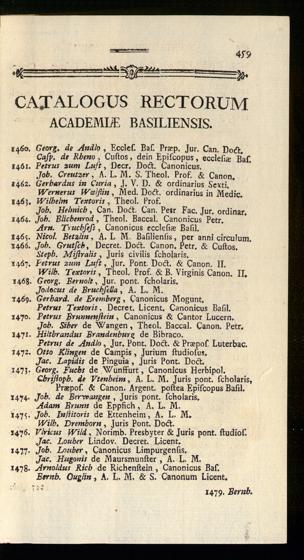 459
CATALOGUS RECTORUM
ACADEMIÆ BASILIENSIS.
1460. Georg. de Andlo, Ecclef. Baf. Præp. Jur. Can. Doct.
Cafp. de Rheno, Cuftos, dein Epifcopus, ecclefiæ Baf.
1461. Petrus zum Luft, Decr. Doct. Canonicus.
Joh. Creutzer, A. L. M. S Theol. Prof. & Canon.
1462. Gerhardus in Curia, J. V. D. & ordinarius Sexti.
Wernerus Med. Doct. ordinarius in Medic.
1463. Wilhelm Textoris, Theol. Prof.
Joh. Helmich, Can. Doct. Can. Petr. Fac. Jur. ordinar.
1464. Joh. Blicherod, Theol. Baccal. Canonicus Petr.
Arn. Truchfefs, Canonicus ecclefiæ Bafil.
1465. Nicol. A. L. M. Bafilienfis, per anni circulum.
1466. Joh. Grutfch, Decret. Doct. Canon. Petr. & Cuftos.
Steph. Miftralis, Juris civilis fcholaris.
1467. Petrus zum Luft, Jur. Pont. Doct. & Canon. II.
Wilh. Textoris, Theol. Prof. & B. Virginis Canon. II.
1468. Georg. Bernolt, Jur. pont. fcholaris.
Jodocus de Bruchfella, A. L. M.
1469. Gerhard. de Eremberg, Canonicus Mogunt.
Petrus Textoris, Decret. Licent. Canonicus Bafil.
1470. Petrus Brunnenftein, Canonicus & Cantor Lucern.
Joh. Siber de Wangen, Theol. Baccal. Canon. Petr.
1471. Hiltbrandus Brandenburg de Bibraco.
Petrus de Andlo, Jur. Pont. Doct. & Præpof Luterbac.
1472. Otto Klingen de Campis, Jurium ftudiofus.
Jac. Lapidis de Pinguia, Juris Pont. Doct.
1473. Georg. Fucht de Wunffurt, Canonicus Herbipol.
Chriftoph. de Vtenheim, A. L. M. Juris pont. fcholaris,
Præpof. & Canon. Argent. poftea Epifcopus Bafil.
1474. Joh. de Berwangen, Juris pont. fcholaris,
Adam Brunn de Eppfich, A. L. M.
1475. Joh. Inftitoris de Ettenheim, A. L. M.
Wilh. Dremborn, Juris Pont. Doct.
1476. Vlricus Wild, Norimb. Presbyter & Juris pont. ftudiof.
Jac. Louber Lindov. Decret. Licent.
1477. Joh. Louber, Canonicus Limpurgenfis.
Jac. Hugonis de Maursmunfter, A. L. M.
1478. Arnoldus Rich de Richenftein, Canonicus Baf.
Bernh. Ougfin, A. L. M. & S. Canonum Licent.
1479. Bernh.